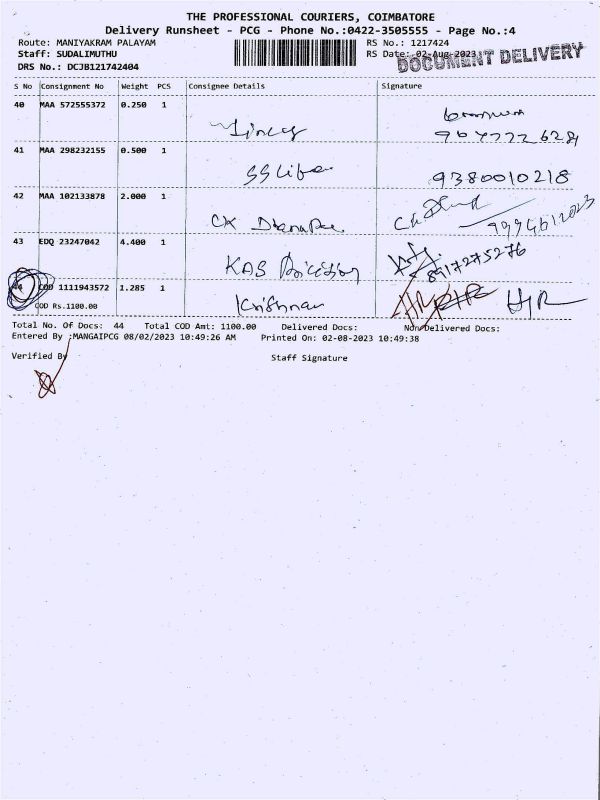 THE PROFESSIONAL COURIERS, COIMBATORE
Delivery Runsheet - PCG - Phone No.:0422-3505555 - Page No.:4
Route: MANIYAKRAM PALAYAM RS No.: 1217424
Staff: SUDALIMUTHU RS Date: 02-Aug-2023
DOCUMENT DELIVERY
DRS No.: DCJB121742404
S No Consignment No Weight PCS Consignee Details Signature
40 MAA 572555372 0.250 1
41 MAA 298232155 0.500 1
9380010218
42 MAA 102133878 2.000 1
CK
43 EDQ 23247042 4.400 1
8917275276
KAS
44 COD 1111943572 1.285 1
COD Rs.1100.00 Krishnan
Total No. Of Docs: 44 Total COD Amt: 1100.00 Delivered Docs: Non Delivered Docs:
Entered By :MANGAIPCG 08/02/2023 10:49:26 AM Printed On: 02-08-2023 10:49:38
Verified By Staff Signature